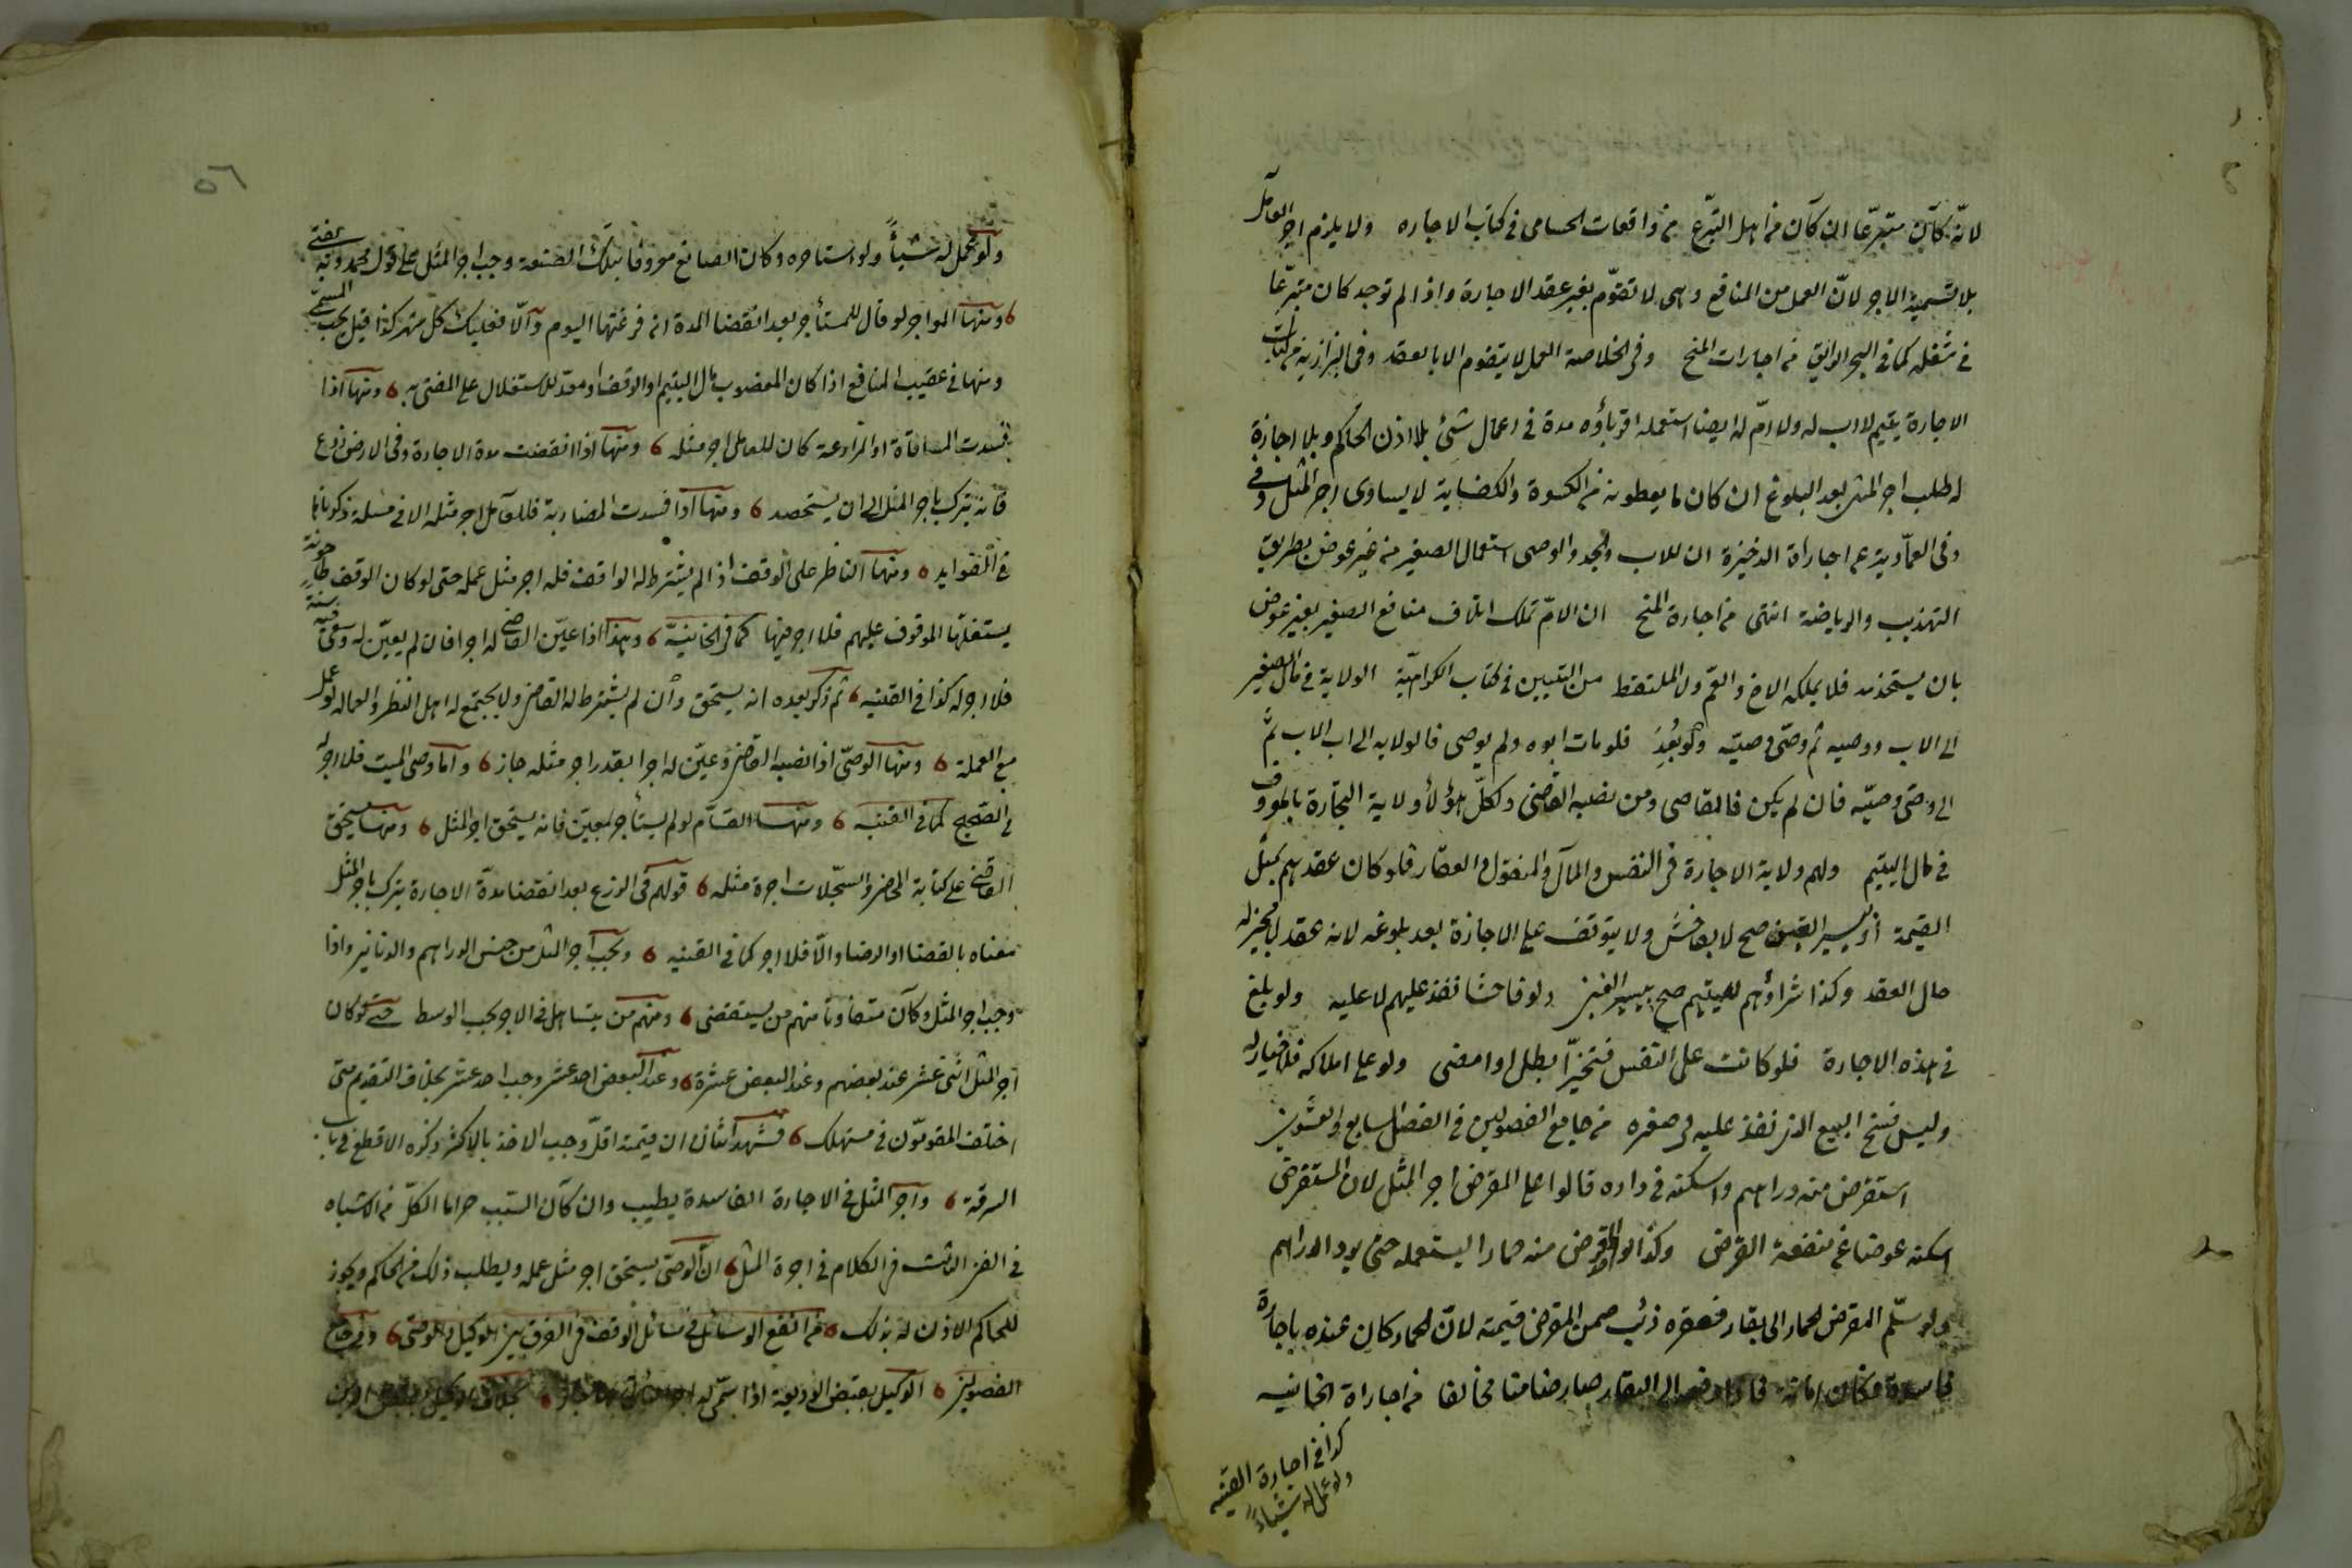 لانه كان متبرعا ان كان من اهل التبرع من واقعات الحسامى فى كتاب الاجاره ولا يلزم اجر العامل
بلا تسمية الاجر لان العمل من المنافع وهى لا تقوم بغير عقد الاجارة واذا لم توجد كان متبرعا
فى شغله كما فى البحر الرائق من اجارات المنح وفى الخلاصة العمل لا يتقوم الا بالعقد وفى البزازية من كتاب
الاجارة يتيم لا اب له ولا ام له ايضا استعمله اقرباؤه مدة فى اعمال شئ بلا اذن الحاكم وبلا اجازة
له طلب اجر المثل بعد البلوغ ان كان ما يعطونه من الكسوة والكفاية لا يساوى اجر المثل وفى
وفى العمادية عن اجاراة الذخيرة ان للاب والجد والوصى استعمال الصغير من غير عوض بطريق
التهذيب والرياضة انتهى من اجارة المنح ان الام تملك اتلاف منافع الصغير بغير عوض
بان يستخدمه فلا يملكه الاخ والعم ولا الملتقط من التبيين فى كتاب الكراهية الولاية فى مال الصغير
الى الاب ووصيه ثم وصى وصيه ولو بعد فلو مات ابوه ولم يوصى فالولايه الى اب الاب ثم
الى وصى وصيه فان لم يكن فالقاضى ومن نصبه القاضى ولكل هؤلأ ولاية التجارة بالمعروف
فى مال اليتيم ولهم ولاية الاجارة فى النفس والمال والمنقول والعقار فلو كان عقدهم بمثل
القيمة او يسير الغبن صح لا بفاحش ولا يتوقف على الاجازة بعد بلوغه لانه عقد لا مجيز له
حال العقد وكذا شراؤهم لليتيم صح بيسير الغبن ولو فاحشا نفذ عليهم لا عليه ولو بلغ
فى هذه الاجارة فلو كانت على النفس فتخير ابطل او امضى ولو على املاكه فلا خيار له
وليس فسخ البيع الذى نفذ عليه فى صغره من جامع الفصولين فى الفصل السابع والعشرين
استقرض منه دراهم واسكنه فى داره قالوا على المقرض اجر المثل لان المستقرض
اسكنه عوضا عن منفعة القرض وكذا لو اقرض منه حمارا ليستعمله حتى يرد الدراهم
ولو سلم المقرض الحمار الى بقار فعقره ذئب ضمن المقرض قيمته لان الحمار كان عنده باجارة
فاسدة فكان امانة فاذا دفعه الى البقار صار ضامنا مخالفا من اجاراة الخانيه
كذا فى اجارة القنيه
ولو عمل له شيأ
ولو عمل له شيأ ولو استاجره وكان الصانع معروفا بتلك الصنعة وجب اجر المثل على قول محمد وبه يفتى
ومنها المواجر لو قال للمستأجر بعد انقضا المدة ان فرغتها اليوم والا فعليك كل شهر كذا قيل يجب المسمى
ومنها فى غصب المنافع اذا كان المغصوب مال اليتيم او الوقف او معد للاستغلال على المفتى به ومنها اذا
فسدت المساقاة او المزارعة كان للعامل اجر مثله ومنها اذا انقضت مدة الاجارة وفى الارض زرع
فانه يترك باجر المثل الى ان يستحصد ومنها اذا فسدت المضاربة فللعامل اجر مثله الا فى مسئلة ذكرناها
فى الفوايد ومنها الناظر على الوقف اذا لم يشترط له الواقف فله اجر مثل عمله حتى لو كان الوقف طاحونة
يستغلها الموقوف عليهم فلا اجر فيها كما فى الخانية وهذا اذا عين القاضى له اجرا فان لم يعين له وسعى فيه سنة
فلا اجر له كذا فى القنيه ثم ذكر بعده انه يستحق وان لم يشترط له القاضى ولا يجتمع له اهل النظر والعماله لو عمل
مع العملة ومنها الوصى اذا نصبه القاضى وعين له اجرا بقدر اجر مثله جاز واما وصى الميت فلا اجر له
فى الصحيح كما فى القنيه ومنها القسام لو لم يستأجر بمعين فانه يستحق اجر المثل ومنها يستحق
القاضى على كتابة المحاضر والسجلات اجرة مثله قولهم فى الزرع بعد انقضا مدة الاجارة يترك باجر المثل
معناه بالقضا او الرضا والا فلا اجر كما فى القنيه ويجب اجر المثل من جنس الدراهم والدنانير واذا
وجب اجر المثل وكان متفاوتا منهم من يستقصى ومنهم من يتساهل فى الاجر يجب الوسط حتى لو كان
اجر المثل اثنى عشر عند بعضهم وعند البعض عشرة وعند البعض احد عشر وجب احد عشر بخلاف التقويم متى
اختلف المقومون فى مستهلك فشهد اثنان ان قيمته اقل وجب الاخذ بالاكثر ذكره الاقطع فى باب
السرقة واجر المثل فى الاجارة الفاسدة يطيب وان كان السبب حراما الكل من الاشباه
فى الفن الثالث فى الكلام فى اجرة المثل ان الوصى يستحق اجر مثل عمله ويطلب ذلك من الحاكم ويجوز
للحاكم الاذن له بذلك من انفع الوسائل فى مسائل الوقف فى الفرق بين الوكيل والوصى وفى جامع
الفصولين الوكيل بقبض الوديعة اذا سمى له اجر بخلاف الوكيل بقبض الدين
٥٦